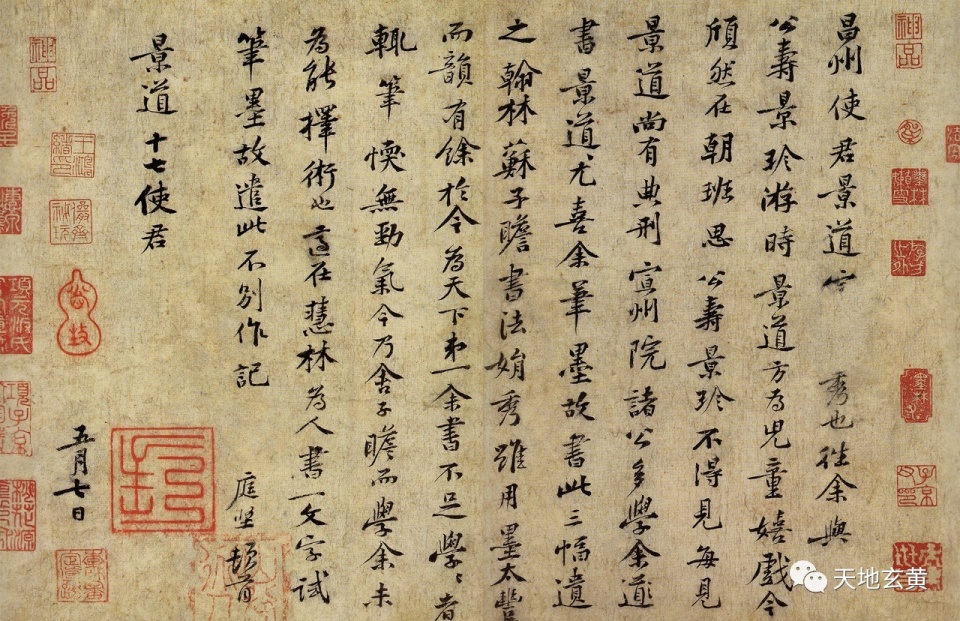 昌州使君景道宗秀也往余與
公壽景珍游時景道方為兒童嬉戲今
頎然在朝班思公壽景珍不得見每見
景道尚有典刑宣州院諸公多學余
書景道尤喜余筆墨故書此三幅遺
之翰林蘇子瞻書法娟秀雖用墨太豐
而韻有餘於今為天下第一余書不足學〻者
輒筆愞無勁氣今乃舍子瞻而學余未
為能擇術也適在慧林為人書一文字試
筆墨故遣此不別作記 庭堅頓首
景道十七使君
五月七日
神品
神品
天地玄黄